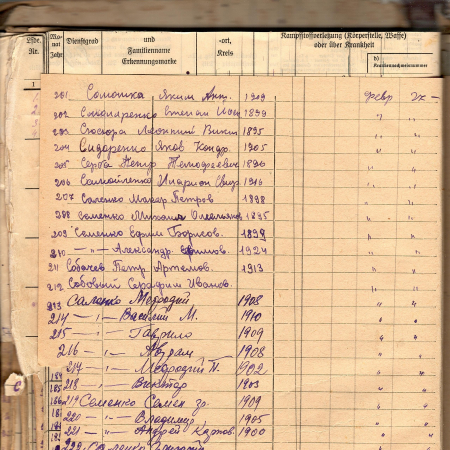 Lfde. Nr. Mo- nat Jahr Dienstgrad und Familienname Erkennungsmarke -ort, Kreis Kampfstoffverletzung (Körperstelle, Waffe) oder über Krankheit
b) Krankenbuchnummer
1
201 Соломка Яким Ант. 1909 февр 27 –
202 Степан 1899 " "
203 Сюсюра Леонтий 1895 " "
204 Сидоренко Яков Кондр. 1905 " "
205 Серба Петр 1896 " "
206 Самойленко Иларион 1916 " "
207 Саленко Макар Петров 1898 " "
208 Семенко Михаил 1895 " "
209 Семенко Ефим Борисов. 1899 " "
210 – " – Александр Ефимов. 1924 " "
211 Собачев Петр Артемов. 1913 " "
212 Собовый Серафим Иванов. " "
213 Саленко Мефодий 1908 " "
214 – " – Василий М. 1910 " "
215 – " – Гаврило 1909 " "
216 – " – Абрам 1908 " "
217 – " – Мефодий П. 1902 " "
218 – " – Виктор 1903 " "
219 Семенко Семен гр. 1909 " "
220 – " – Владимир 1905 " "
221 – " – Андрей Карпов. 1900 " "
222